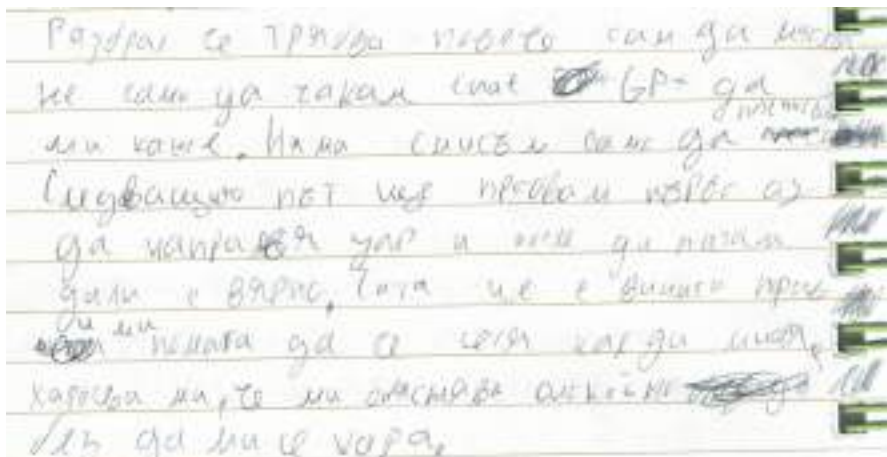 Разбрах че трябва повече сам да мисля
не само да чакам chat GP- да
ми каже. Няма смисъл само да
Следващию пот ще пробвам първо аз
да направя и после да питам
дали е вярно. Чата не е винаги прав
ми помага да се сетя как да мисля,
харесва ми, че ми обяснява спокойно
без да ми се кара.